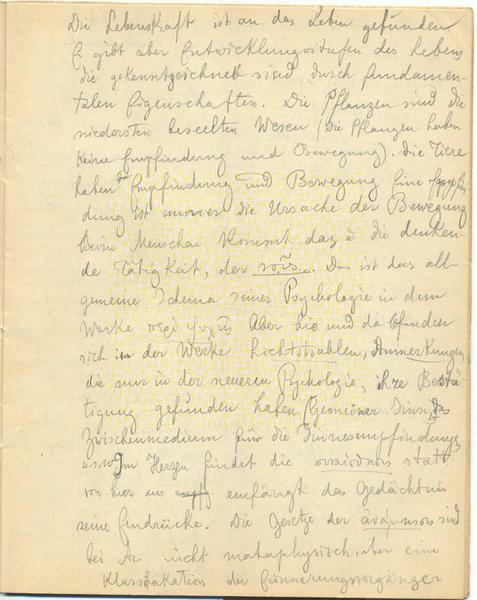 Die Lebenskraft ist an das Leben gefunden
E gibt aber Entwicklungsstufen des Lebens
die gekenntzeichnet sind durch fundamen-
talen Eigenschaften. Die Pflanzen sind die
niedersten beseelten Wesen (Die Pflanzen haben
keine Empfindung und Bewegung). die Tiere
haben Empfindung und Bewegung Eine Empfin
dung ist immer die Ursache der Bewegung
Beim Menschen kommt dazu die denken-
de Tätigkeit, der νοῦς. Das ist das all-
gemeine Schema seiner Psychologie in dem
Werke περὶ ψυχῆς Aber hie und da befinden
sich in der Werke Lichtstrahlen, Anmerkungen
die nur in der neueren Psychologie, ihre Bestä-
tigung gefunden haben (Gemeiner Sinn, das
Zwischenmedium für die Sinnesempfindungen
usw. Im Herzen findet die statt
von hier aus empfängt das Gedächtnis
seine Eindrücke. Die Gesetze der sind
bei Ar. nicht metaphysisch, aber eine
Klassifikation der Erinnerungsvorgängen